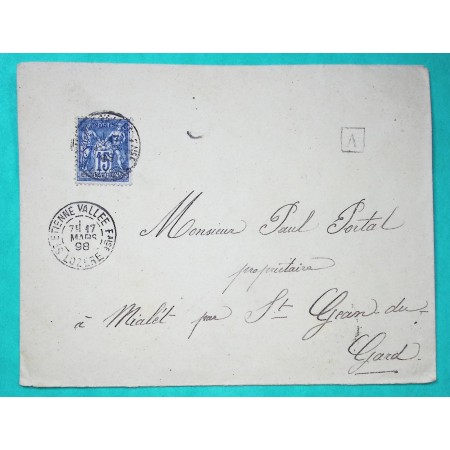 15
A
ST ETIENNE VALLÉE FSE
17
MARS
98
LOZERE
Monsieur Paul Portal
propriétaire
à Mialét par St Jean-du-
Gard.